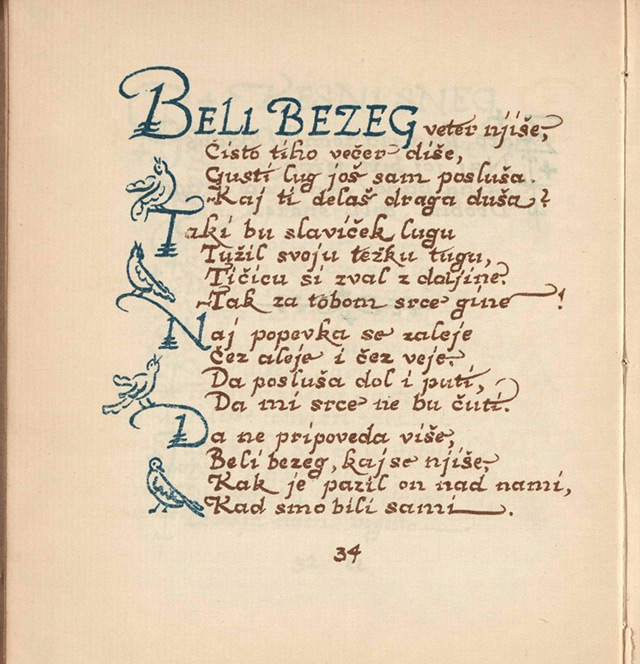 BELI BEZEG veter njiše,
Čisto tiho večer diše,
Gusti lug još sam posluša.
~Kaj ti delaš draga duša?
Taki bu slaviček lugu
Tužil svoju težku tugu,
Tičicu si zval z daljine:
~Tak za tobom srce gine!
Naj popevka se zaleje
Čez aleje i čez veje.
Da posluša dol i puti,
Da mi srce ne bu čuti.
Da ne pripoveda više,
Beli bezeg, kaj se njiše,
Kak je pazil on nad nami,
Kad smo bili sami.
34